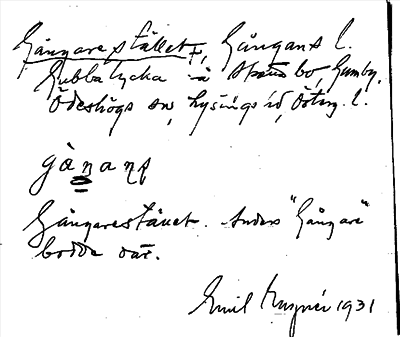 Gångarestället, Gångans l.
Gubbalycka å Strands bo, Gamby,
Ödeshögs sn, Lysings hd, Östg. l.
gàŋaŋs
Gångarestället. Anders "Gångare"
bodde där.
Emil 1931